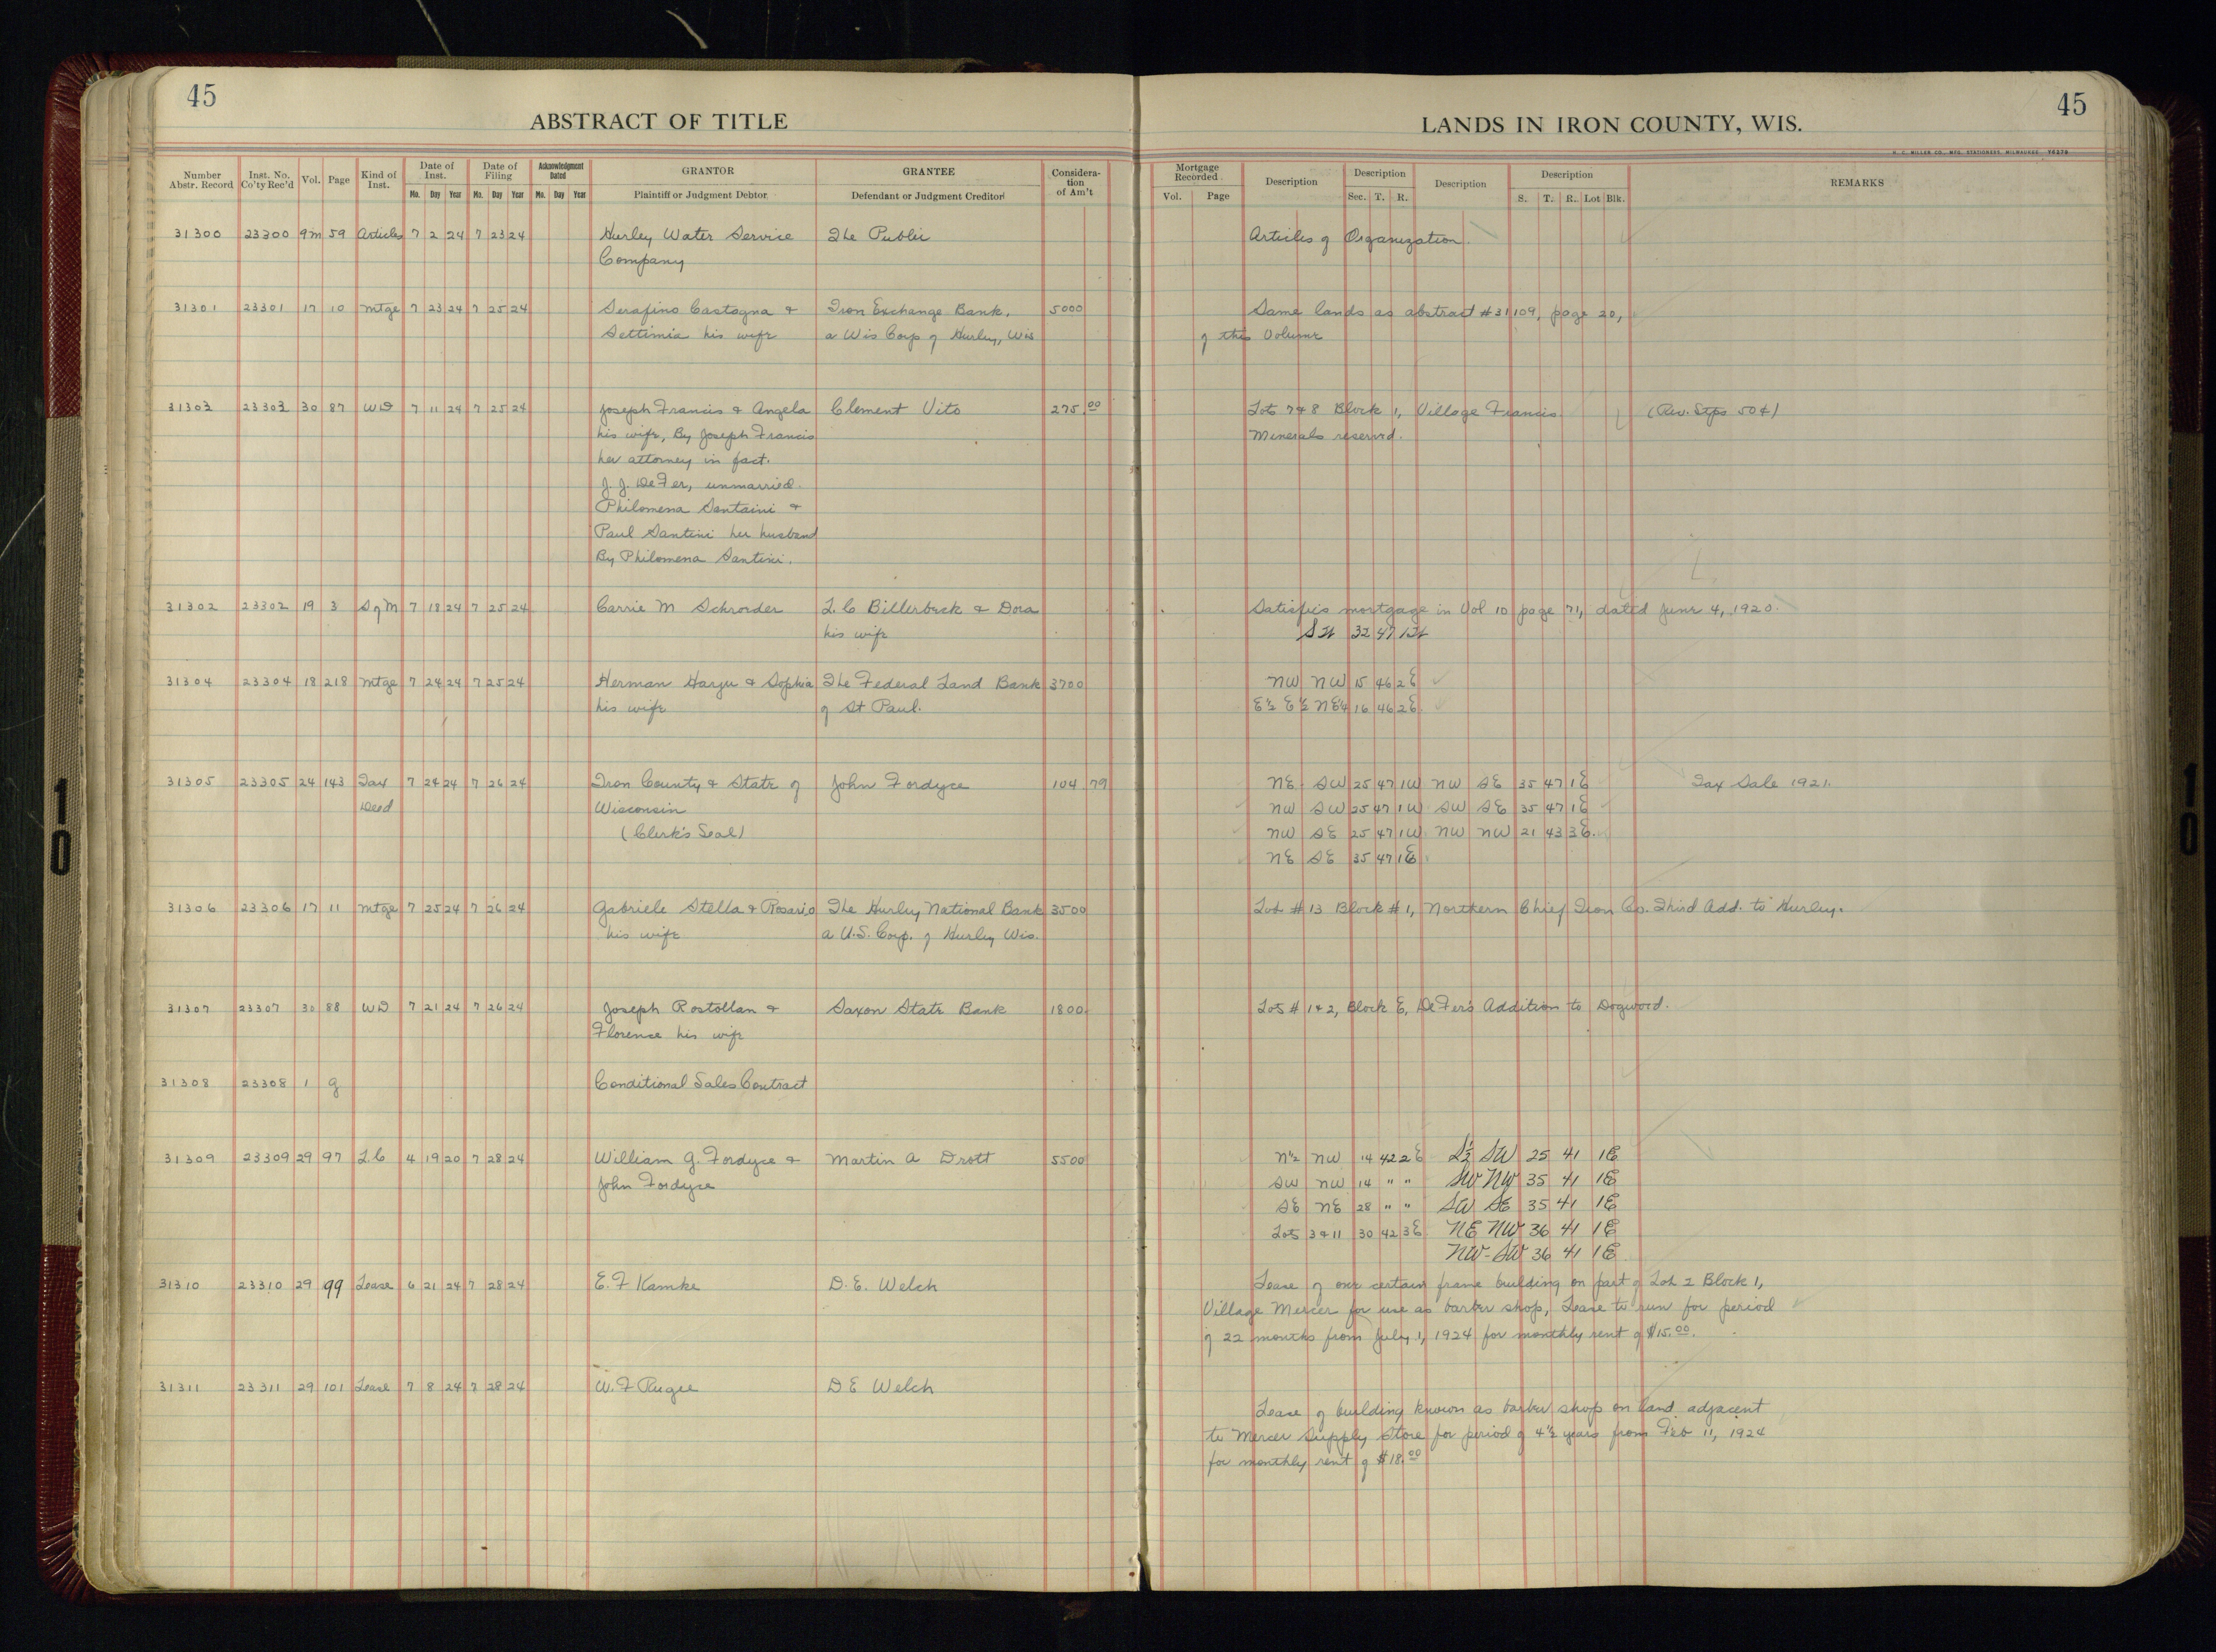 45
ABSTRACT OF TITLE
LANDS IN IRON COUNTY, WIS.
45
H. C. MILLER CO., MFG. STATIONERS, MILWAUKEE
Number Abstr. Record
Inst. No. Co'ty Rec'd
Vol.
Page
Kind of Inst.
Date of Inst.
Mo. Day Year
Date of Filing
Mo. Day Year
Acknowledgment Dated
Mo. Day Year
GRANTOR
Plaintiff or Judgment Debtor
GRANTEE
Defendant or Judgment Creditor
Considera-tion of Am't
Mortgage Recorded
Vol. Page
Description
Description
Sec. T. R.
Description
Description
S. T. R. Lot Blk.
REMARKS
31300 23300 9m 59 Articles 7 2 24 7 23 24 Hurley Water Service The Public Articles of Organization
Company
31301 23301 17 10 Mtge 7 23 24 7 25 24 Serafino Castagna & Iron Exchange Bank, 5000 Same lands as abstract #31109, page 20,
Settimia his wife a Wis Corp of Hurley, Wis of this Volume
31303 23303 30 87 WD 7 11 24 7 25 24 Joseph Francis & Angela Clement Vito 275.00 Lots 7&8 Block 1, Village Francis. (Rev. Stps 50¢)
his wife, By Joseph Francis Minerals reserved.
her attorney in fact.
J. J. DeFer, unmarried.
Philomena Santaini &
Paul Santini her husband
By Philomena Santini.
31302 23302 19 3 S of M 7 18 24 7 25 24 Carrie M Schroeder L. C Billerbeck & Dora Satisfies mortgage in Vol 10 page 71, dated June 4, 1920.
his wife 32 47
31304 23304 18 218 Mtge 7 24 24 7 25 24 Herman Harju & Sophia The Federal Land Bank 3700 NW NW 15 46 2E
his wife of St Paul. E½ E½ NE¼ 16 46 2E
31305 23305 24 143 Tax 7 24 24 7 26 24 Iron County & State of John Fordyce 104 79 NE SW 25 47 1W NW SE 35 47 1E Tax Sale 1921.
Deed Wisconsin NW SW 25 47 1W SW SE 35 47 1E
(Clerk's Seal) NW SE 25 47 1W NW NW 21 43 3E.
NE SE 35 47 1E
31306 23306 17 11 Mtge 7 25 24 7 26 24 Gabriele Stella & Rosario The Hurley National Bank 3500 Lot #13 Block #1, Northern Chief Iron Co. Third Add. to Hurley.
his wife a U.S. Corp. of Hurley Wis.
31307 23307 30 88 WD 7 21 24 7 26 24 Joseph Rostollan & Saxon State Bank 1800 Lots # 1&2, Block E, DeFer's Addition to Dogwood.
Florence his wife
31308 23308 1 g Conditional Sales Contract
31309 23309 29 97 L.C 4 19 20 7 28 24 William G. Fordyce & Martin A Drott 5500 N½ NW 14 42 2E S½ SW 25 41 1E
John Fordyce SW NW 14 " " SW NW 35 41 1E
SE NE 28 " " SW SE 35 41 1E
Lots 3&11 30 42 3E NE NW 36 41 1E
NW-SW 36 41 1E
31310 23310 29 99 Lease 6 21 24 7 28 24 E. F Kamke D. E. Welch Lease of one certain frame building on part of Lot 2 Block 1,
Village Mercer for use as barber shop, Lease to run for period
of 22 months from July 1, 1924 for monthly rent of $15.00.
31311 23311 29 101 Lease 7 8 24 7 28 24 W. F Rugee D E Welch
Lease of building known as barber shop on land adjacent
to Mercer Supply Store for period of 4½ years from Feb 11, 1924
for monthly rent of $18.00
10
10